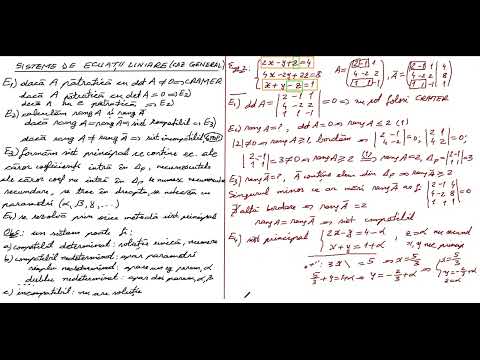 SISTEME DE ECUAȚII LINIARE (CAZ GENERAL)
E1) dacă A pătratică cu det A ≠ 0 ⇒ CRAMER
dacă A pătratică cu det A = 0 ⇒ E2)
dacă A nu e pătratică ⇒ E2)
E2) calculăm rang A și rang Ā
dacă rang A = rang Ā ⇒ sist compatibil ⇒ E3)
dacă rang A ≠ rang Ā ⇒ sist incompatibil (STOP)
E3) formăm sist principal ce conține ec. ale
căror coeficienți intră în Δp, necunoscutele
ale căror coef nu intră în Δp se numesc necunoscute
secundare, se trec în dreapta, se notează cu
parametri (α, β, γ, ...)
E4) se rezolvă prin orice metodă sist principal
Obs: un sistem poate fi:
a) compatibil determinat: soluție unică, numere
b) compatibil nedeterminat: apar parametri
simplu nedeterminat: apare un sg param, α
dublu nedeterminat: apar doi param, α, β
c) incompatibil: nu are soluție
Ex2: { 2x-y+z=4
4x-2y+2z=8
x+y-z=1
A= (2 -1 1
4 -2 2
1 1 -1), Ā= (2 -1 1 4
4 -2 2 8
1 1 -1 1)
E1) det A = |2 -1 1
4 -2 2
1 1 -1| = 0 ⇒ nu pot folosi CRAMER
E2) rang A=?, det A=0 ⇒ rang A ≤ 2 (1)
|2|≠0 ⇒ rang A ≥ 1 bordăm ⇒ |2 -1
4 -2| = 0; |2 1
4 2| = 0;
|2 -1
1 1| = 3 ≠ 0 ⇒ rang A ≥ 2 ⇒ rang A = 2, Δp = |2 -1
1 1| = 3
rang Ā=?, Ā conține elem din Δp ⇒ rang Ā ≥ 2
Singurul minor ce ar mări rang Ā e |2 -1 4
4 -2 8
1 1 1| = 0
altă bordare ⇒ rang Ā = 2
rang A = rang Ā ⇒ sist compatibil
sist principal { 2x-y=4-α
x+y=1+α, z=α nec secund
x, y nec princ
"+": 3x = 5 ⇒ x = 5/3
5/3 + y = 1+α ⇒ y = -2/3 + α ⇒ { x = 5/3
y = -2/3 + α
z = α